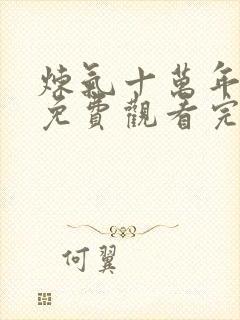 煉氣十萬年
免費觀看完
何翼